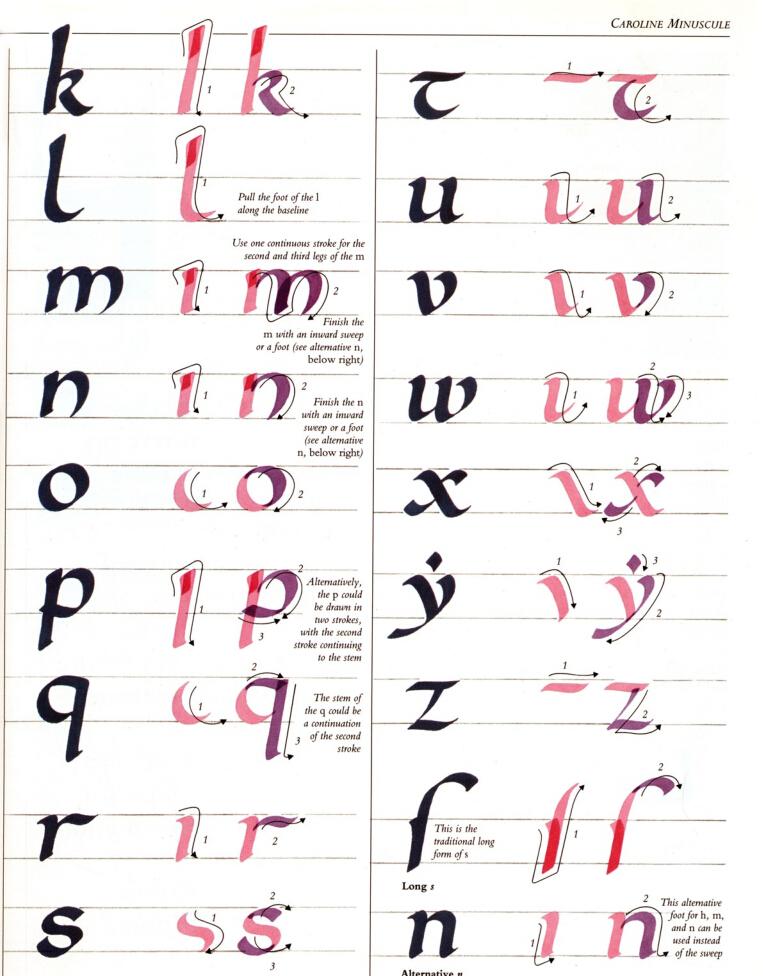 CAROLINE MINUSCULE
k 1 k 2
l 1
Pull the foot of the l
along the baseline
Use one continuous stroke for the
second and third legs of the m
m 1 m 2
Finish the
m with an inward sweep
or a foot (see alternative n,
below right)
n 1 n 2
Finish the n
with an inward
sweep or a foot
(see alternative
n, below right)
o 1 o 2
p 1 p 2 3
Alternatively,
the p could
be drawn in
two strokes,
with the second
stroke continuing
to the stem
q 1 q 2 3
The stem of
the q could be
a continuation
of the second
stroke
r 1 r 2
s 1 s 2 3
t 1 t 2
u 1 u 2
v 1 v 2
w 1 w 2 3
x 1 x 2 3
ẏ 1 ẏ 2 3
z 1 z 2
ſ 1 ſ 2
This is the
traditional long
form of s
Long s
n 1 n 2
This alternative
foot for h, m,
and n can be
used instead
of the sweep
Alternative n